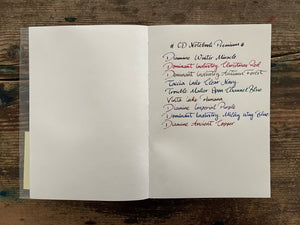 # CD Notebook Premium #
Diamine Winter Miracle
Dominant Industry Christmas Red
Dominant Industry Autumn Forest
Taccia Lake Clear Navy
Trouble Maker Boon Channel Blue
Vinta Lake
Diamine Imperial Purple
Dominant Industry Milky Way Blue
Diamine Ancient Copper